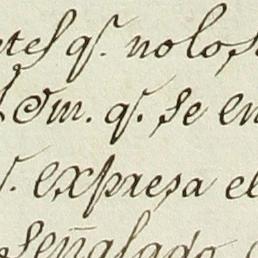 tes qᵉ. no los
em. qᵉ. se en
expresa el
Señalado